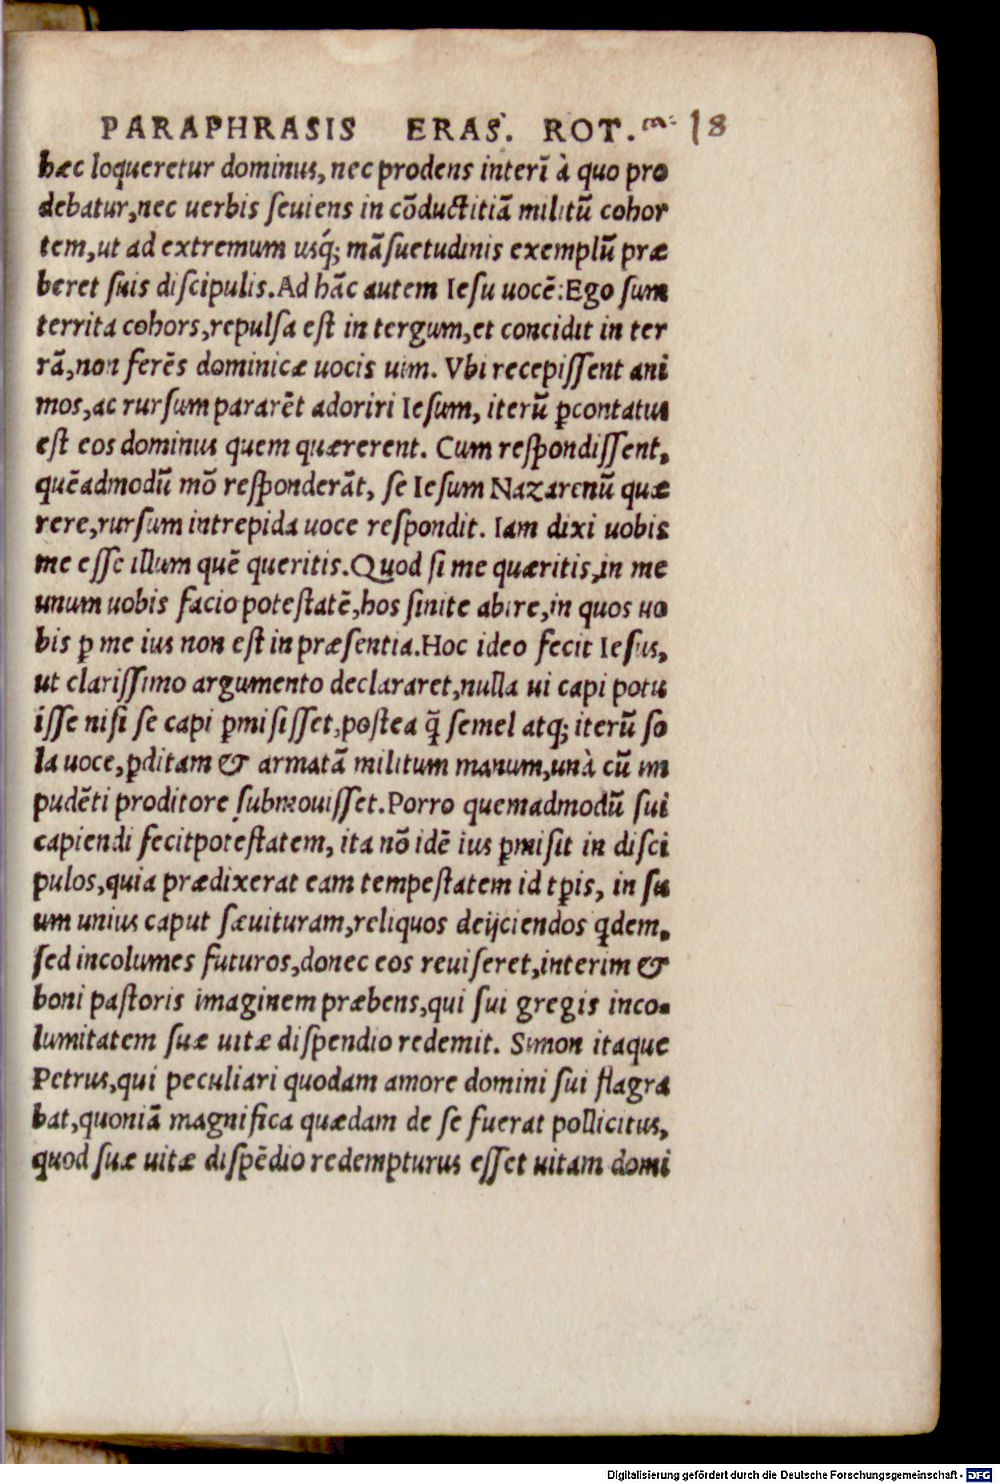 PARAPHRASIS ERAS. ROT. 18
hæc loqueretur dominus, nec prodens interī à quo pro
debatur,nec uerbis ſeuiens in cōductitiā militū cohor
tem,ut ad extremum uſq́; māſuetudinis exemplū præ
beret ſuis diſcipulis.Ad hāc autem Ieſu uocē:Ego ſum
territa cohors,repulſa eſt in tergum,et concidit in ter
rā,non ferēs dominicæ uocis uim. Vbi recepiſſent ani
mos,ac rurſum pararēt adoriri Ieſum, iterū ꝑcontatus
eſt eos dominus quem quærerent. Cum reſpondiſſent,
quēadmodū mō reſponderāt, ſe Ieſum Nazarenū quæ
rere,rurſum intrepida uoce reſpondit. Iam dixi uobis
me eſſe illum quē queritis.Quod ſi me quæritis,in me
unum uobis facio poteſtatē,hos ſinite abire,in quos uo
bis ꝑ me ius non eſt in præſentia.Hoc ideo fecit Ieſus,
ut clariſſimo argumento declararet,nulla ui capi potu
iſſe niſi ſe capi ꝑmiſiſſet,poſtea q̄ ſemel atq; iterū ſo
la uoce,ꝑditam & armatā militum manum,unà cū im
pudēti proditore ſubmouiſſet.Porro quemadmodū ſui
capiendi fecitpoteſtatem, ita nō idē ius ꝑmiſit in diſci
pulos,quia prædixerat eam tempeſtatem id tꝑis, in ſu
um unius caput ſæuituram,reliquos deijciendos qdem,
ſed incolumes futuros,donec eos reuiſeret,interim &
boni paſtoris imaginem præbens,qui ſui gregis inco-
lumitatem ſuæ uitæ diſpendio redemit. Simon itaque
Petrus,qui peculiari quodam amore domini ſui flagra
bat,quoniā magnifica quædam de ſe fuerat pollicitus,
quod ſuæ uitæ diſpēdio redempturus eſſet uitam domi
Digitalisierung gefördert durch die Deutsche Forschungsgemeinschaft - DFG